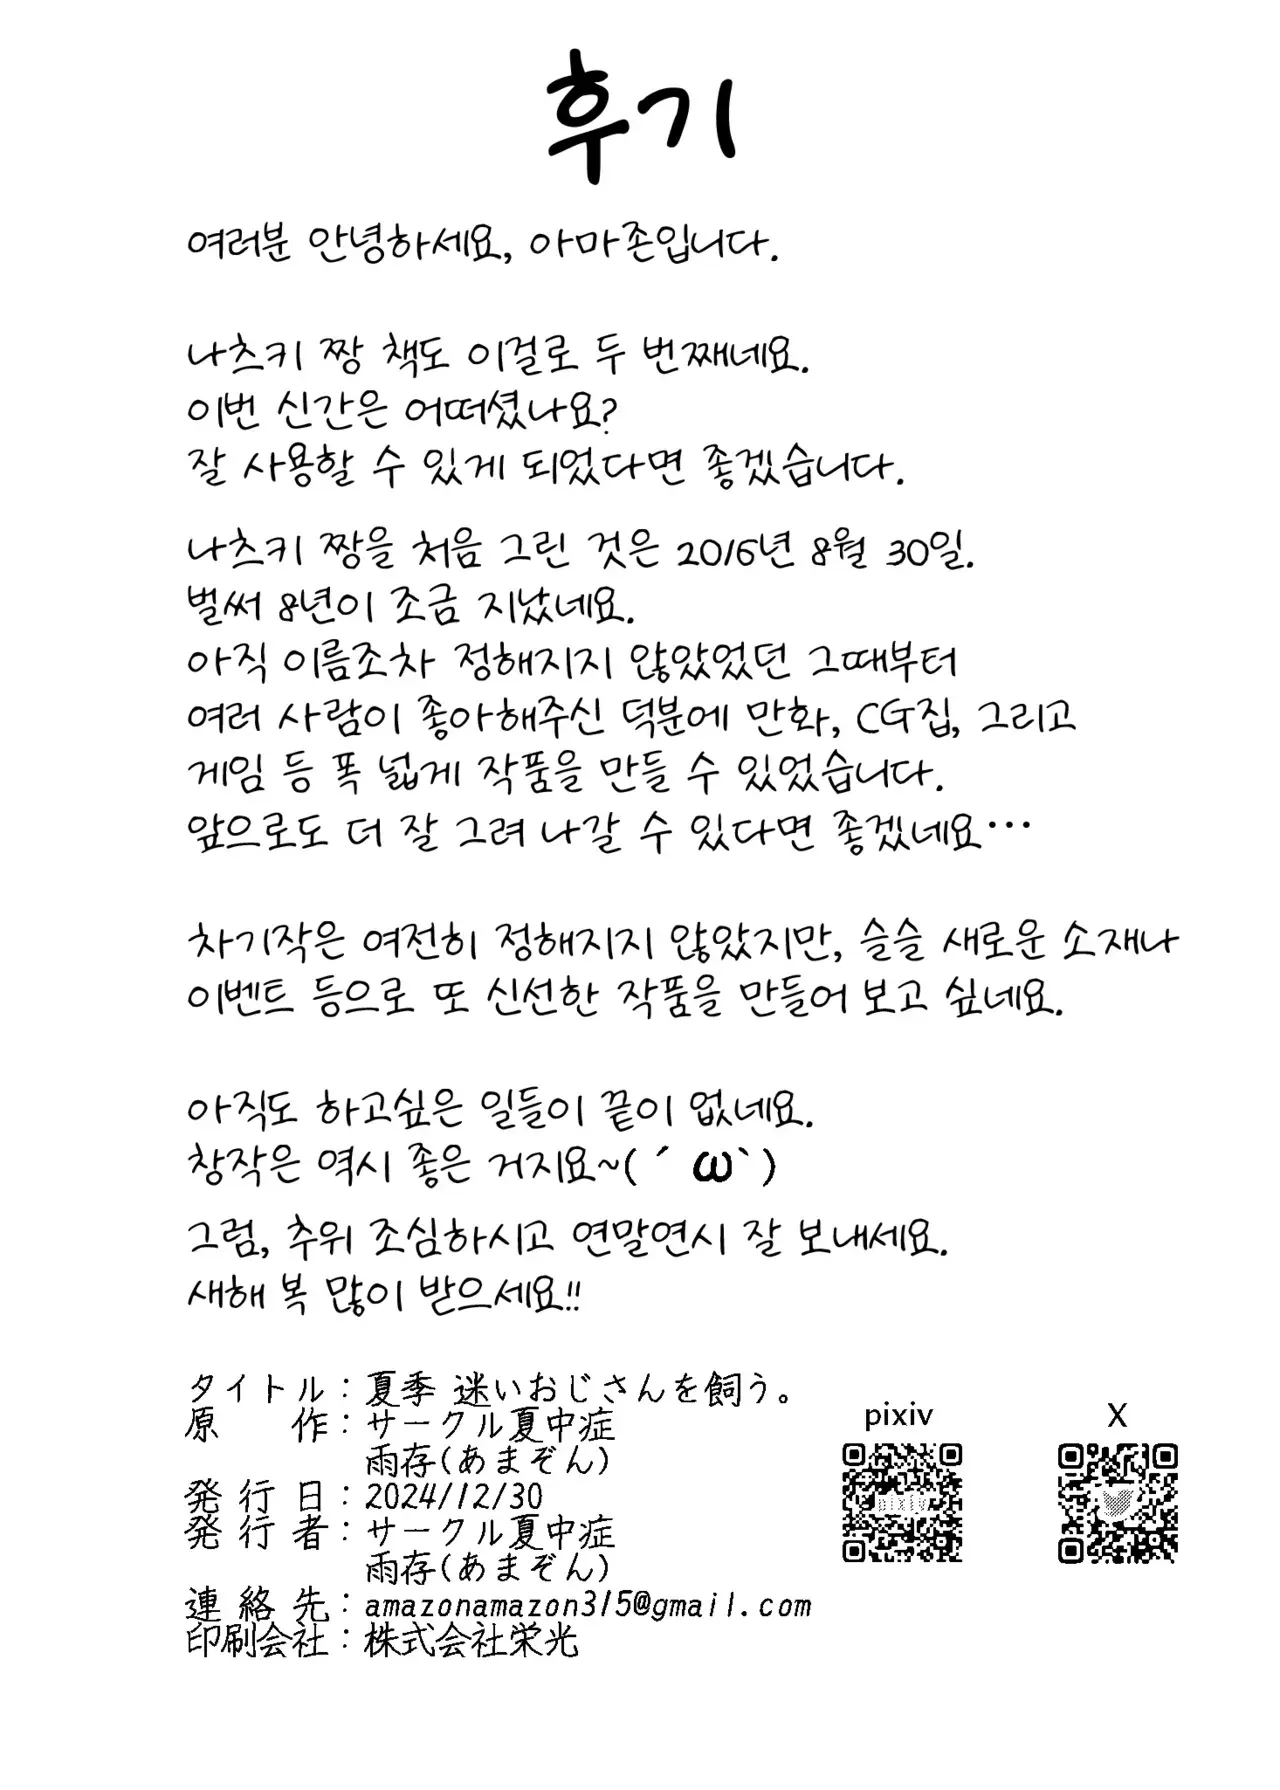 후기
여러분 안녕하세요, 아마존입니다.
나츠키 짱 책도 이걸로 두 번째네요.
이번 신간은 어떠셨나요?
잘 사용할 수 있게 되었다면 좋겠습니다.
나츠키 짱을 처음 그린 것은 2016년 8월 30일.
벌써 8년이 조금 지났네요.
아직 이름조차 정해지지 않았었던 그때부터
여러 사람이 좋아해주신 덕분에 만화, CG집, 그리고
게임 등 폭 넓게 작품을 만들 수 있었습니다.
앞으로도 더 잘 그려 나갈 수 있다면 좋겠네요…
차기작은 여전히 정해지지 않았지만, 슬슬 새로운 소재나
이벤트 등으로 또 신선한 작품을 만들어 보고 싶네요.
아직도 하고싶은 일들이 끝이 없네요.
창작은 역시 좋은 거지요~( ´ ω` )
그럼, 추위 조심하시고 연말연시 잘 보내세요.
새해 복 많이 받으세요!!
タイトル：夏季 迷いおじさんを飼う。
原　　作：サークル夏中症
雨存(あまぞん)
発 行 日：2024/12/30
発 行 者：サークル夏中症
雨存(あまぞん)
連 絡 先：amazonamazon315@gmail.com
印刷会社：株式会社栄光
pixiv
X
pixiv